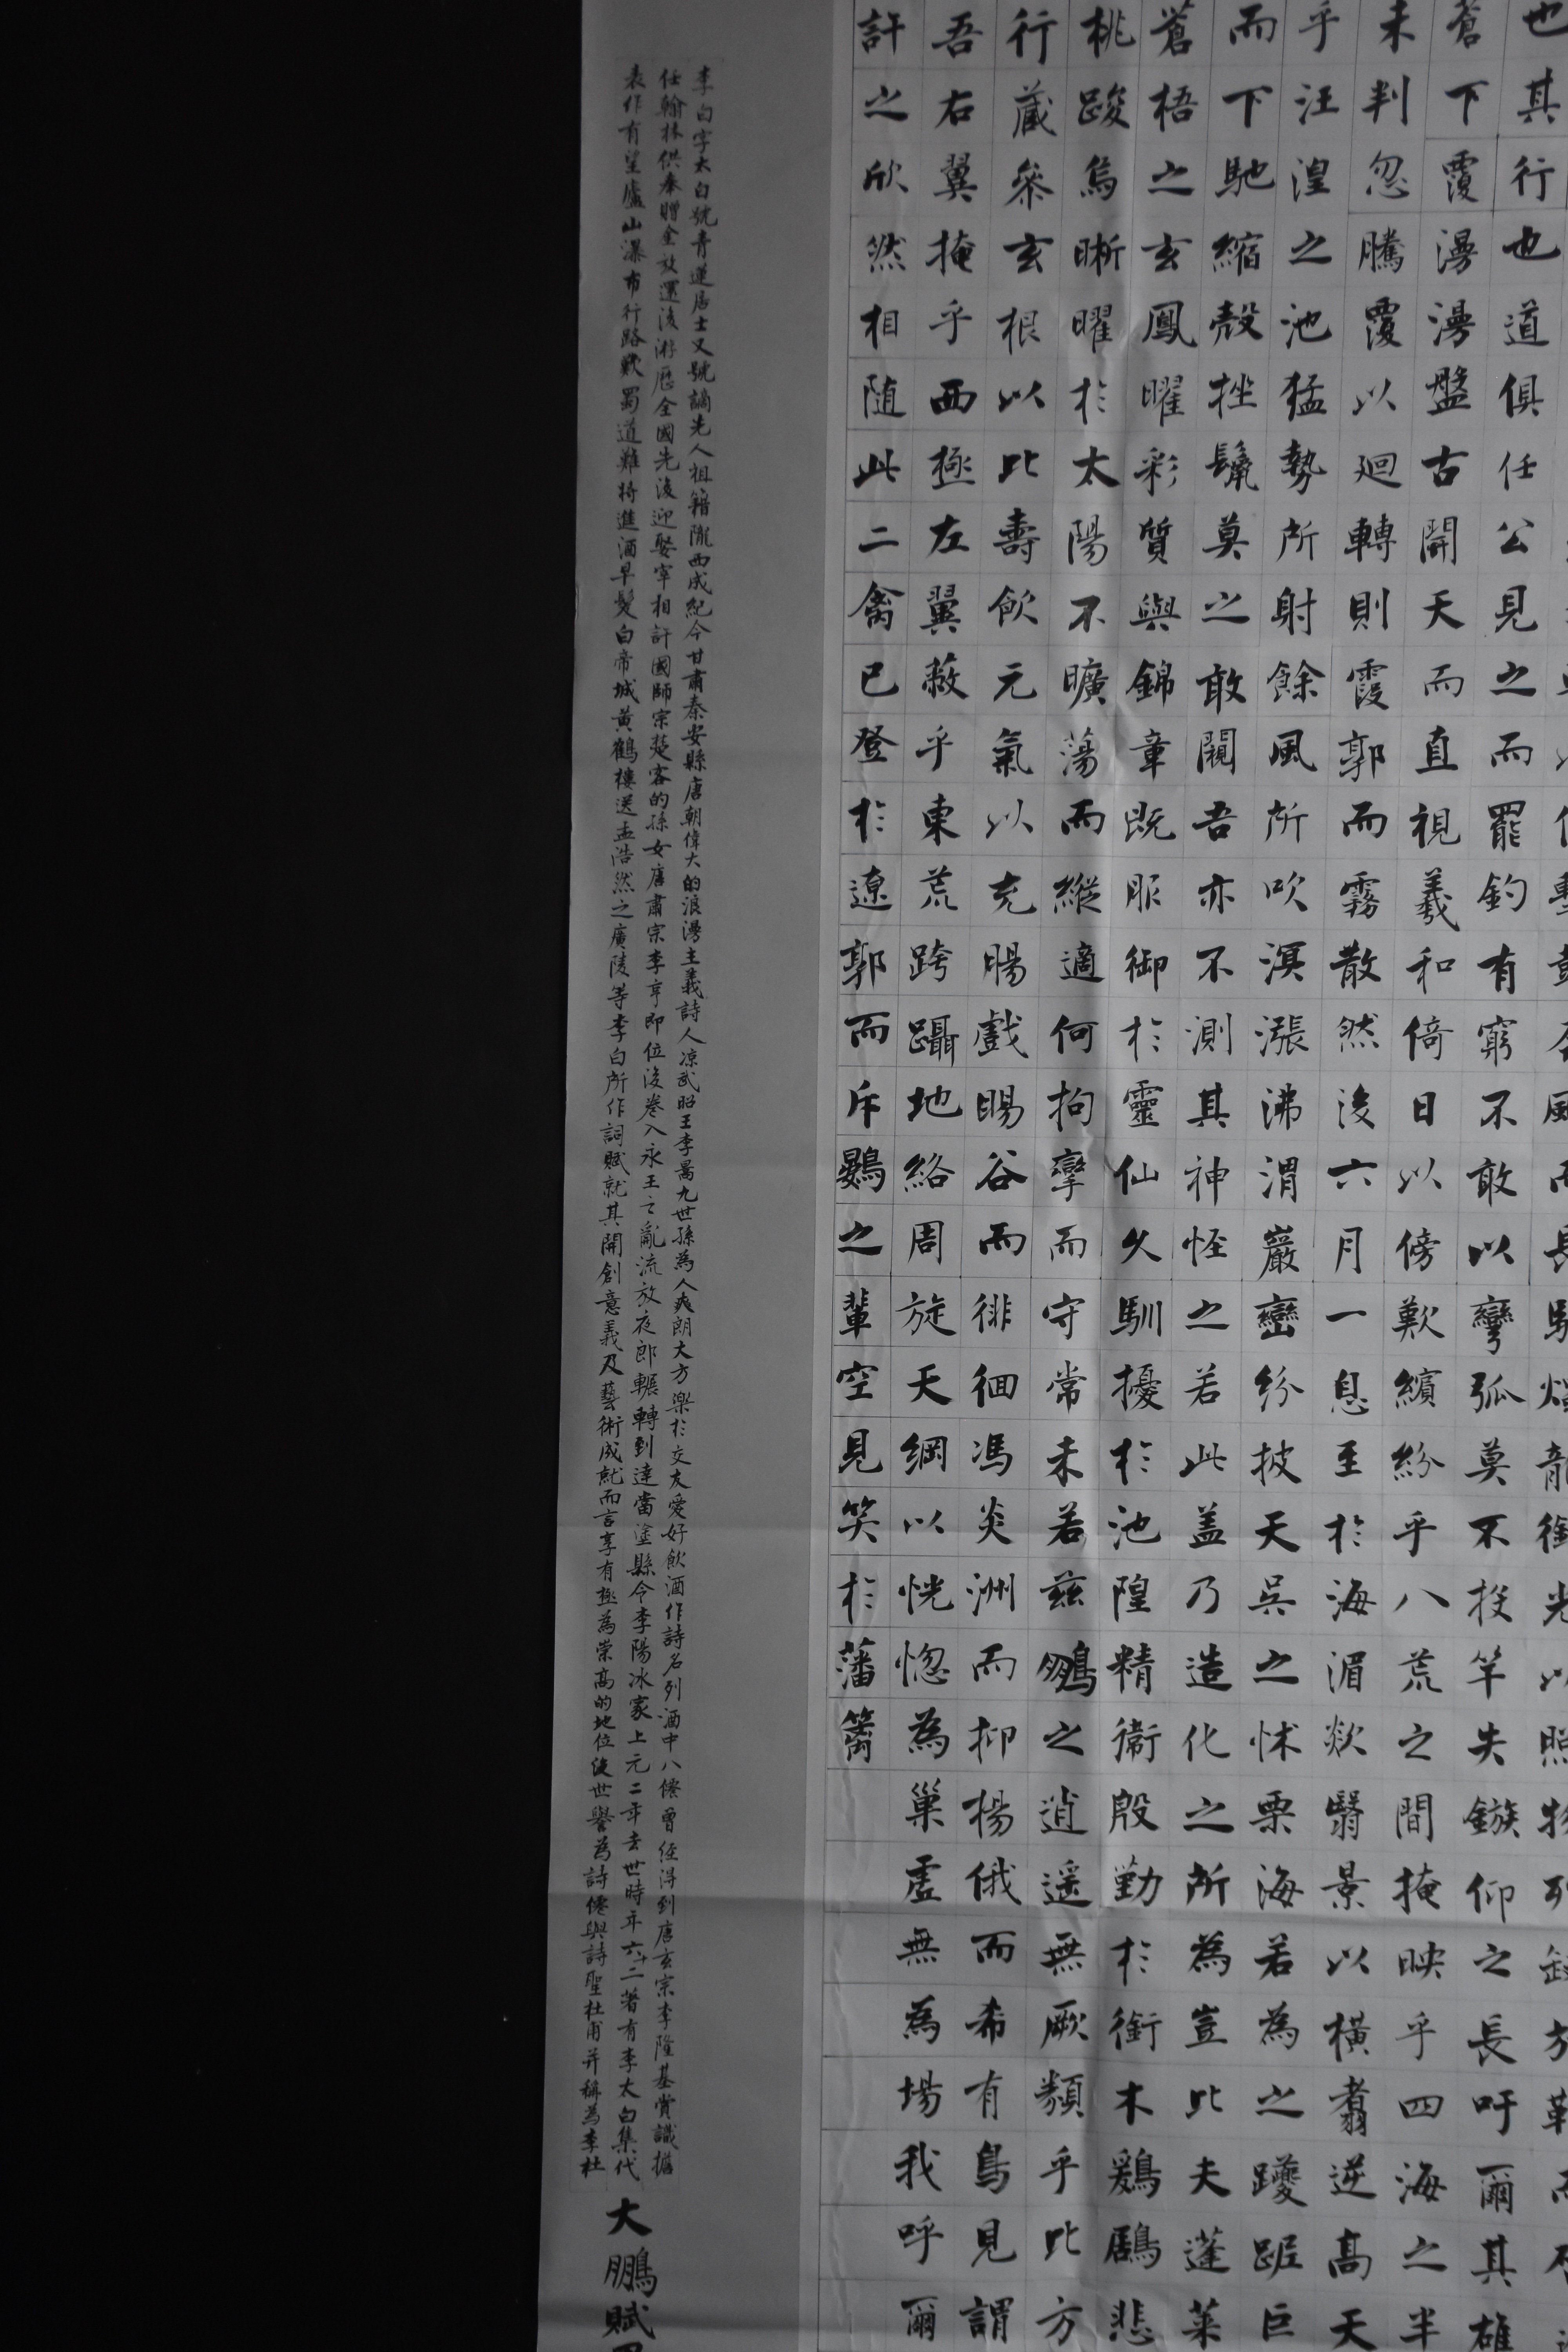 也其行也道俱任公見之而罷釣有窮不敢以彎弧莫不投竿失鏃仰之長吁爾其雄
蒼下覆漫漫盤古開天而直視羲和倚日以傍歎繽紛乎八荒之間掩映乎四海之半
未判忽騰覆以廻轉則霞郭而霧散然後六月一息至於海湄欻翳景以橫翥逆高天
乎汪湟之池猛勢所射餘風所吹溟漲沸渭巖巒紛披天吳之怵栗海若為之躨跜巨
而下馳縮殼挫鬣莫之敢闚吾亦不測其神怪之若此盖乃造化之所為豈比夫蓬萊
蒼梧之玄鳳曜彩質與錦章既服御於靈仙久馴擾於池隍精衛殷勤於銜木鶢鶋悲
桃踆烏晰曜於太陽不曠蕩而縱適何拘攣而守常未若茲鵬之逍遥無厥類乎比方
行藏叅玄根以比壽飲元氣以充腸戲暘谷而徘徊馮炎洲而抑揚俄而希有鳥見謂
吾右翼掩乎西極左翼蔽乎東荒跨躡地絡周旋天綱以恍惚為巢虛無為場我呼爾
許之欣然相随此二禽已登於遼郭而斥鷃之輩空見笑於藩籬
李白字太白號青蓮居士又號謫先人祖籍隴西成紀今甘肅秦安縣唐朝偉大的浪漫主義詩人凉武昭王李暠九世孫為人爽朗大方樂於交友愛好飲酒作詩名列酒中八僊曾經得到唐玄宗李隆基賞識擔
任翰林供奉贈金放還後游歷全國先後迎娶宰相許圉師宗楚客的孫女唐肅宗李亨即位後卷入永王之亂流放夜郎輾轉到達當塗縣令李陽冰家上元二年去世時年六十二著有李太白集代
表作有望廬山瀑布行路難蜀道難將進酒早髮白帝城黃鶴樓送孟浩然之廣陵等李白所作詞賦就其開創意義及藝術成就而言享有極為崇高的地位後世譽為詩僊與詩聖杜甫并稱為李杜
大鵬賦